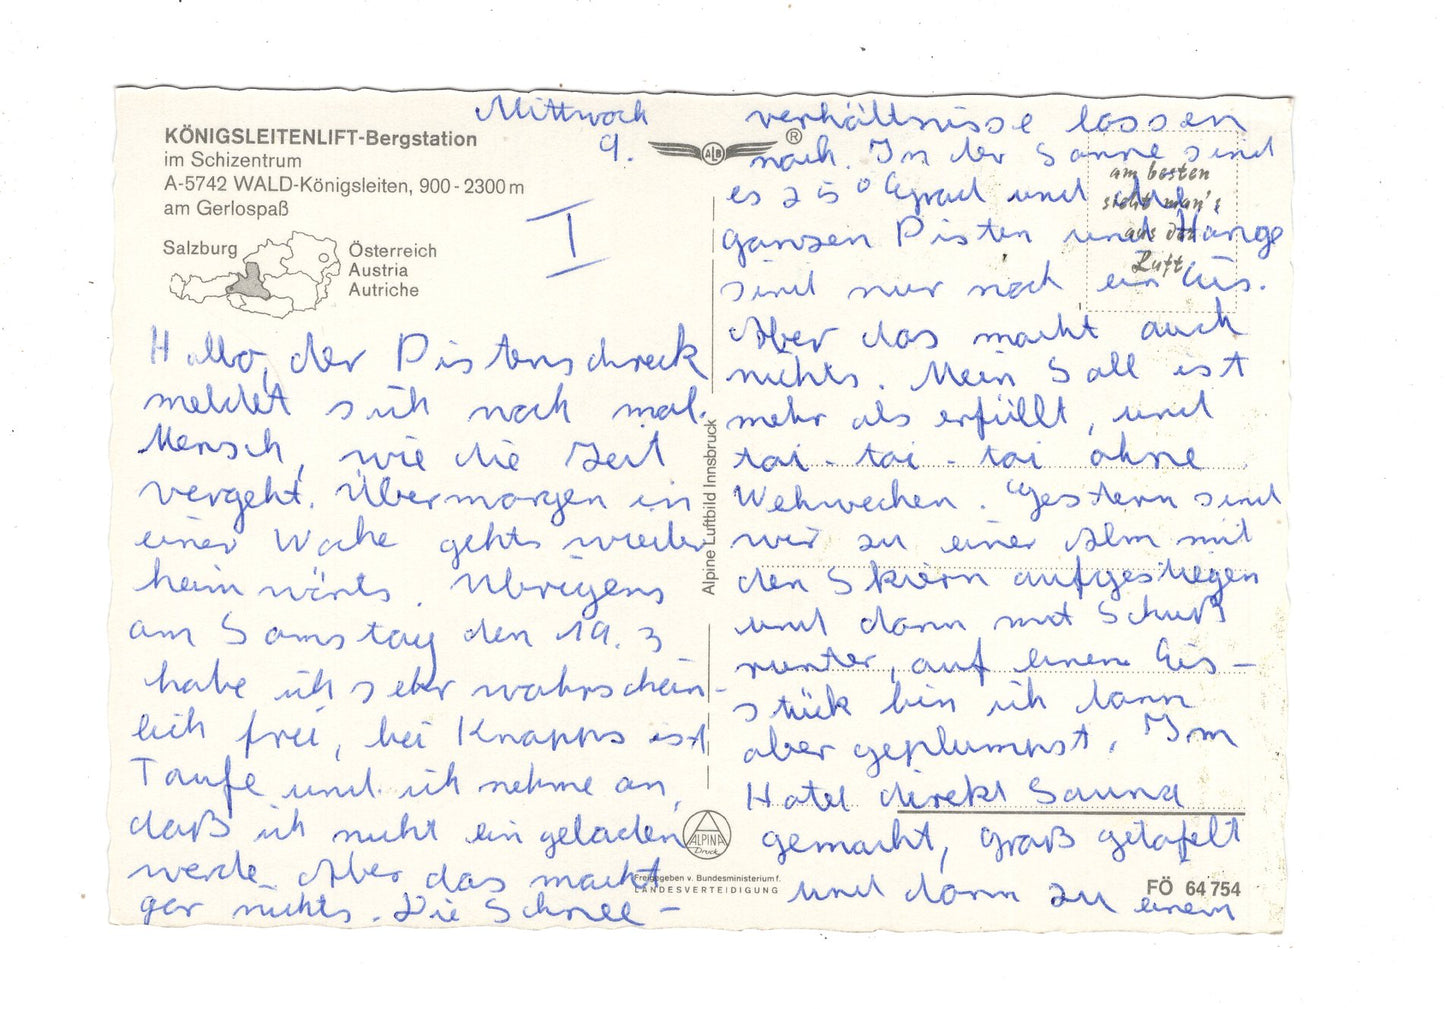 Mittwoch
9.
KÖNIGSLEITENLIFT-Bergstation
im Schizentrum
A-5742 WALD-Königsleiten, 900-2300 m
am Gerlospaß
Salzburg
Österreich
Austria
Autriche
I
Hallo, der Pistenschreck
meldet sich noch mal.
Mensch, wie die Zeit
vergeht. Übermorgen in
einer Woche gehts wieder
heimwärts. Übrigens
am Samstag den 19. 3
habe ich sehr wahrschein-
lich frei, bei Knapps ist
Taufe und ich nehme an,
daß ich nicht eingeladen
werde. Aber das macht
gar nichts. Die Schnee-
ALB
®
Alpine Luftbild Innsbruck
ALPINA
Druck
Freigegeben v. Bundesministerium f.
LANDESVERTEIDIGUNG
am besten
sieht man's
aus der
Luft
verhältnisse lassen
nach. In der Sonne sind
es 25° Grad und die
ganzen Pisten und Hänge
sind nur noch ein Eis.
Aber das macht auch
nichts. Mein Soll ist
mehr als erfüllt, und
toi-toi-toi ohne
Wehwechen. Gestern sind
wir zu einer Alm mit
den Skiern aufgestiegen
und dann mit Schuß
runter, auf einem Eis-
stück bin ich dann
aber geplumpst. Im
Hotel direkt Sauna
gemacht, groß getafelt
und dann zu einem
FÖ 64 754